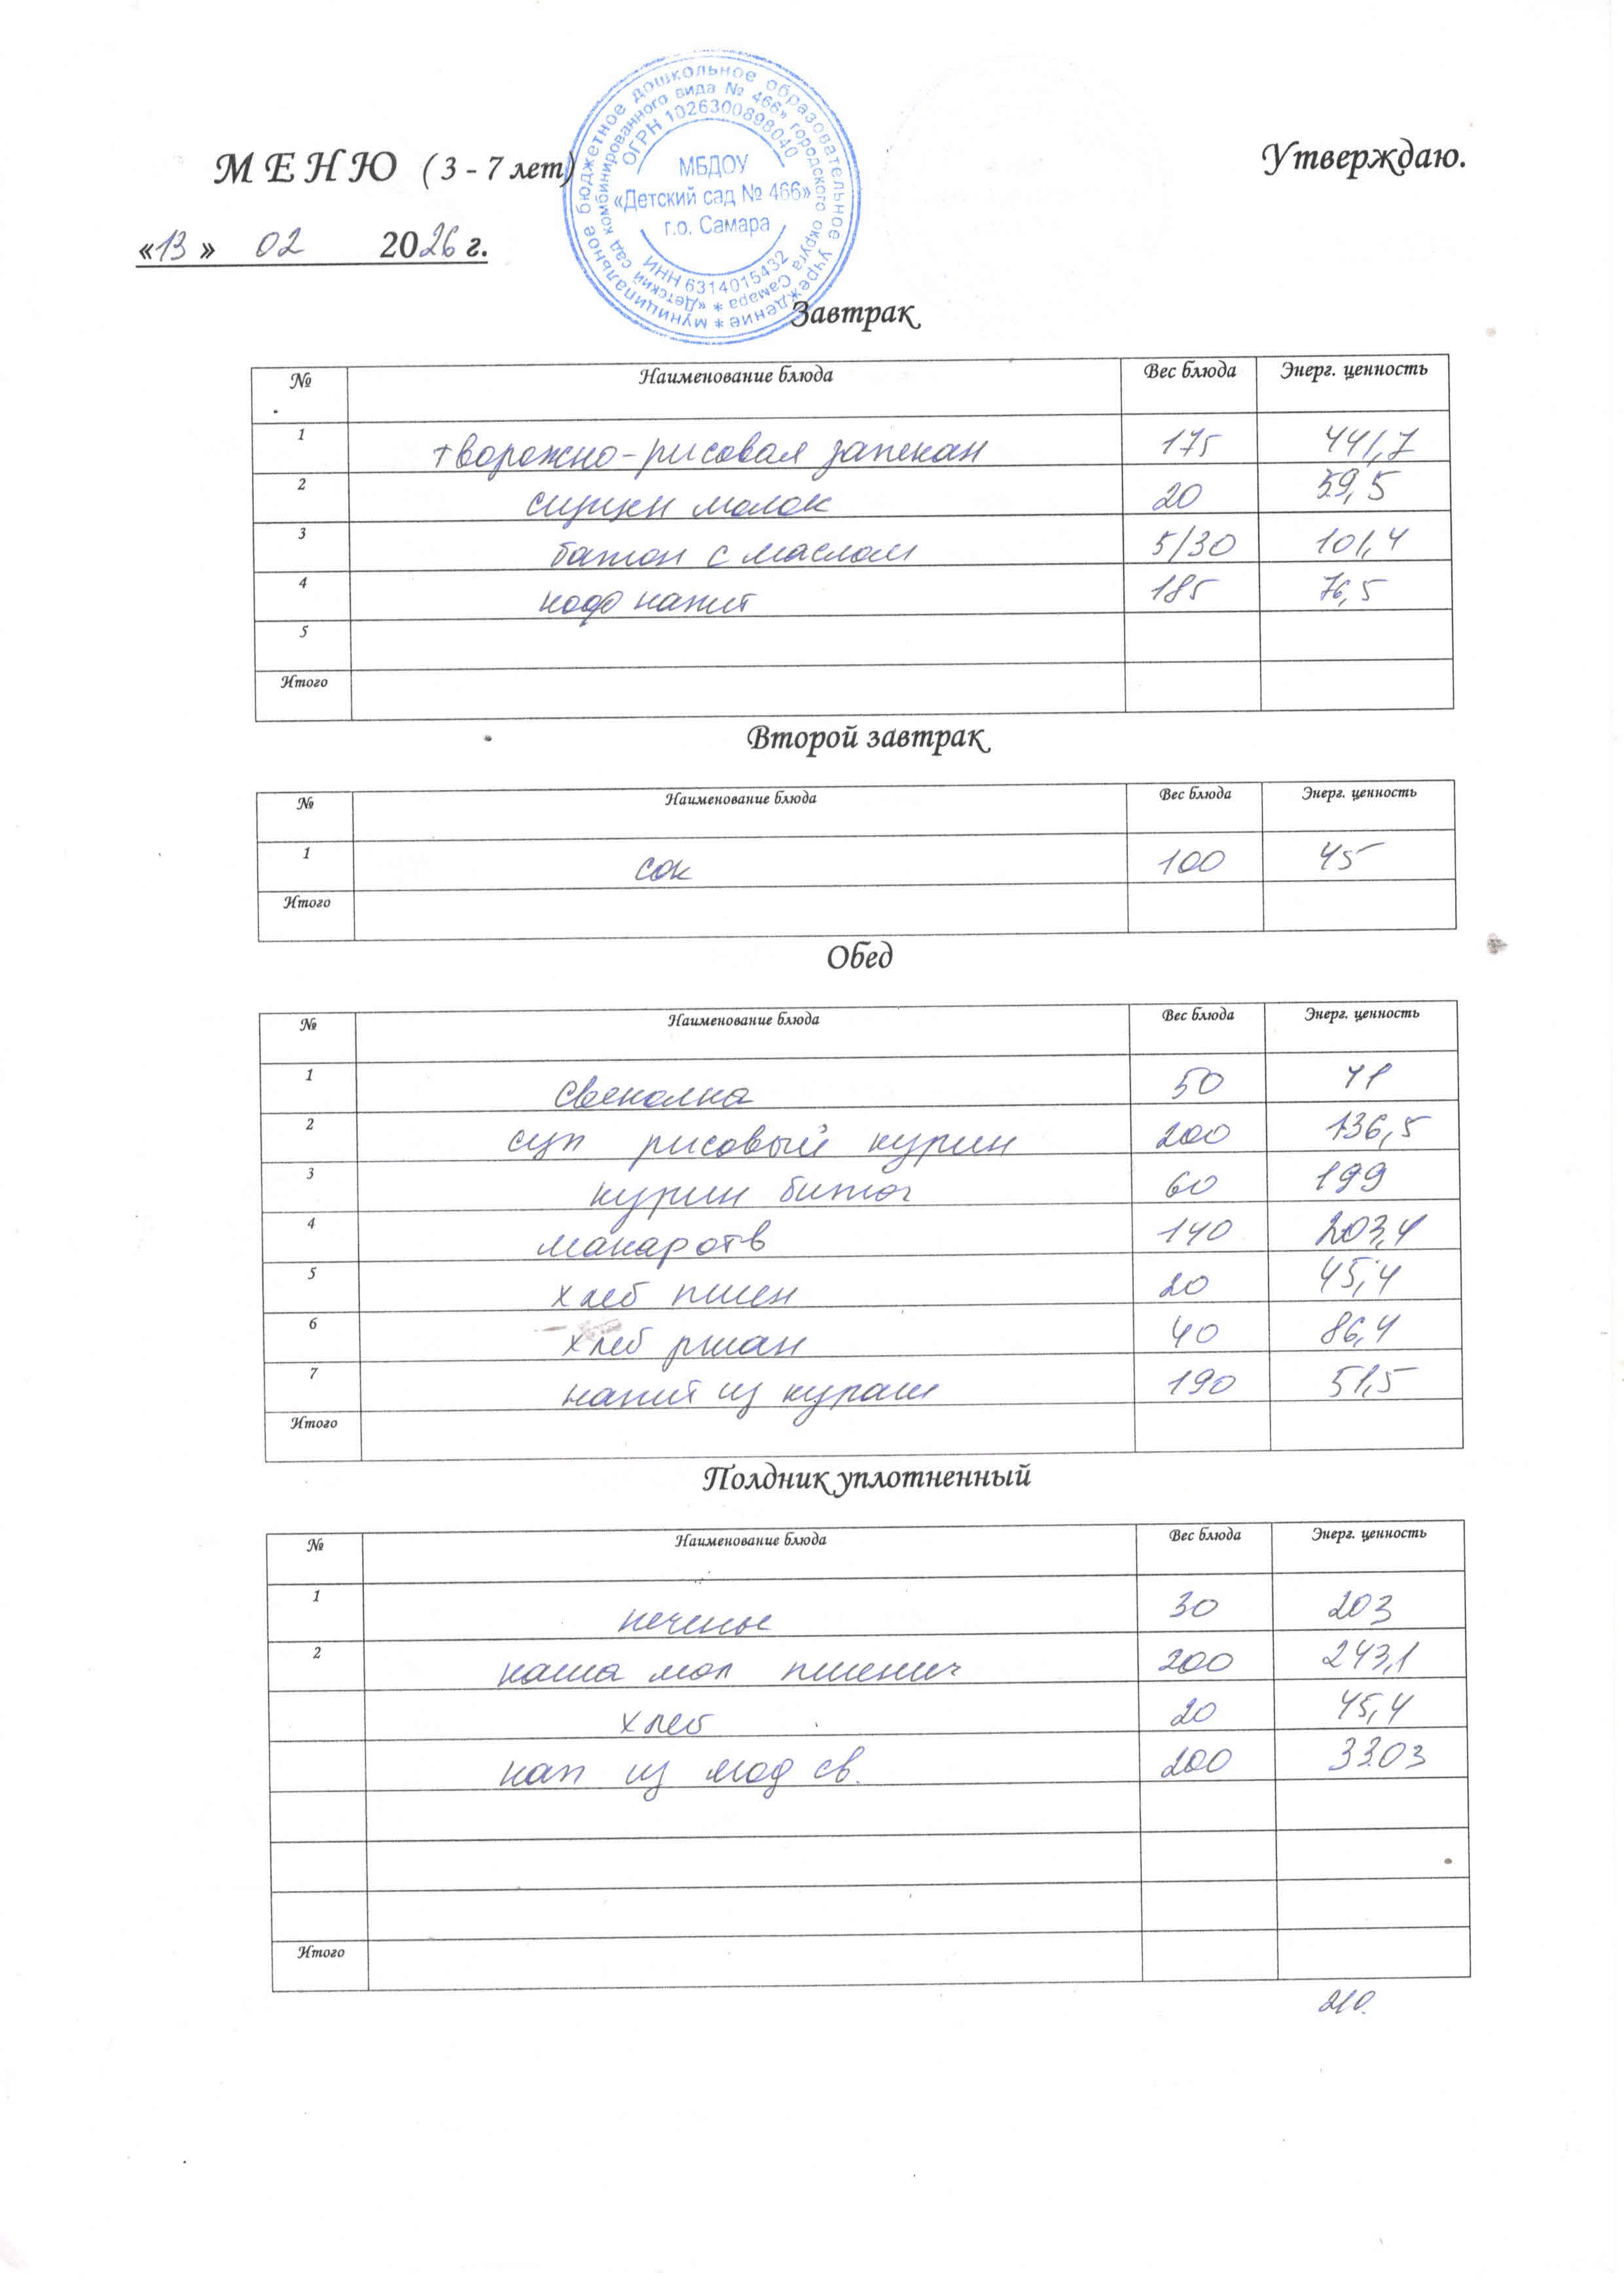 М Е Н Ю ( 3 - 7 лет)
Утверждаю.
«13» 02 2026 г.
муниципальное бюджетное дошкольное образовательное учреждение *
«Детский сад комбинированного вида № 466» городского округа Самара *
ОГРН 1026300898040
МБДОУ
«Детский сад № 466»
г.о. Самара
ИНН 6314015432
Завтрак
№ Наименование блюда Вес блюда Энерг. ценность
1 творожно-рисовая запекан 175 441,7
2 сгущен молок 20 59,5
3 батон с маслом 5/30 101,4
4 кофе напит 185 76,5
5
Итого
Второй завтрак
№ Наименование блюда Вес блюда Энерг. ценность
1 сок 100 45
Итого
Обед
№ Наименование блюда Вес блюда Энерг. ценность
1 свеколка 50
2 суп рисовый курин 200 136,5
3 курин биточ 60 199
4 макар отв 140 203,4
5 хлеб пшен 20 45,4
6 хлеб ржан 40 86,4
7 напит из кураги 190 51,5
Итого
Полдник уплотненный
№ Наименование блюда Вес блюда Энерг. ценность
1 печенье 30 203
2 каша мол пшенич 200 243,1
хлеб 20 45,4
нап из ягод св. 200
Итого
210.